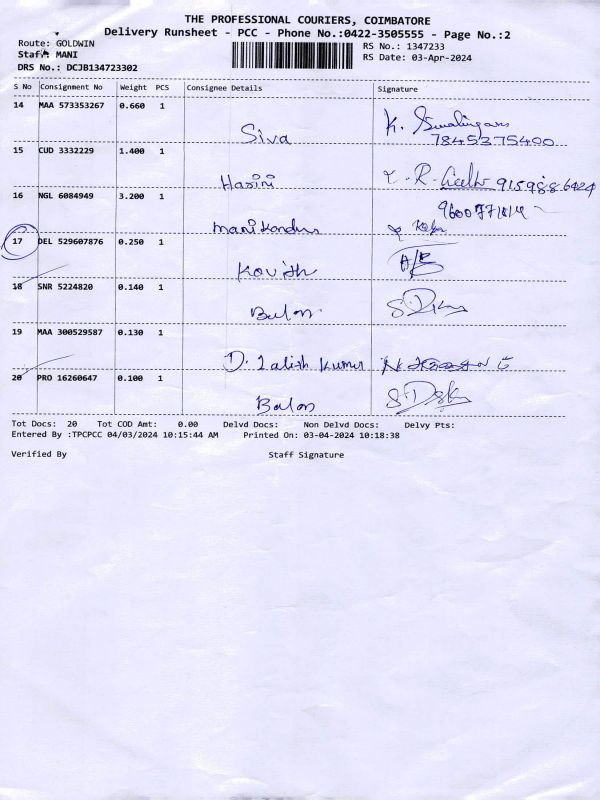 THE PROFESSIONAL COURIERS, COIMBATORE
Delivery Runsheet - PCC - Phone No.:0422-3505555 - Page No.:2
Route: GOLDWIN
Staff: MANI
DRS No.: DCJB134723302
RS No.: 1347233
RS Date: 03-Apr-2024
S No Consignment No Weight PCS Consignee Details Signature
14 MAA 573353267 0.660 1
Siva K.
7845375400
15 CUD 3332229 1.400 1
Hasini R. 9159886424
16 NGL 6084949 3.200 1
Manikandan
17 DEL 529607876 0.250 1
18 SNR 5224820 0.140 1
Balan
19 MAA 300529587 0.130 1
D. Lalith Kumar
20 PRO 16260647 0.100 1
Balan
Tot Docs: 20 Tot COD Amt: 0.00 Delvd Docs: Non Delvd Docs: Delvy Pts:
Entered By :TPCPCC 04/03/2024 10:15:44 AM Printed On: 03-04-2024 10:18:38
Verified By Staff Signature